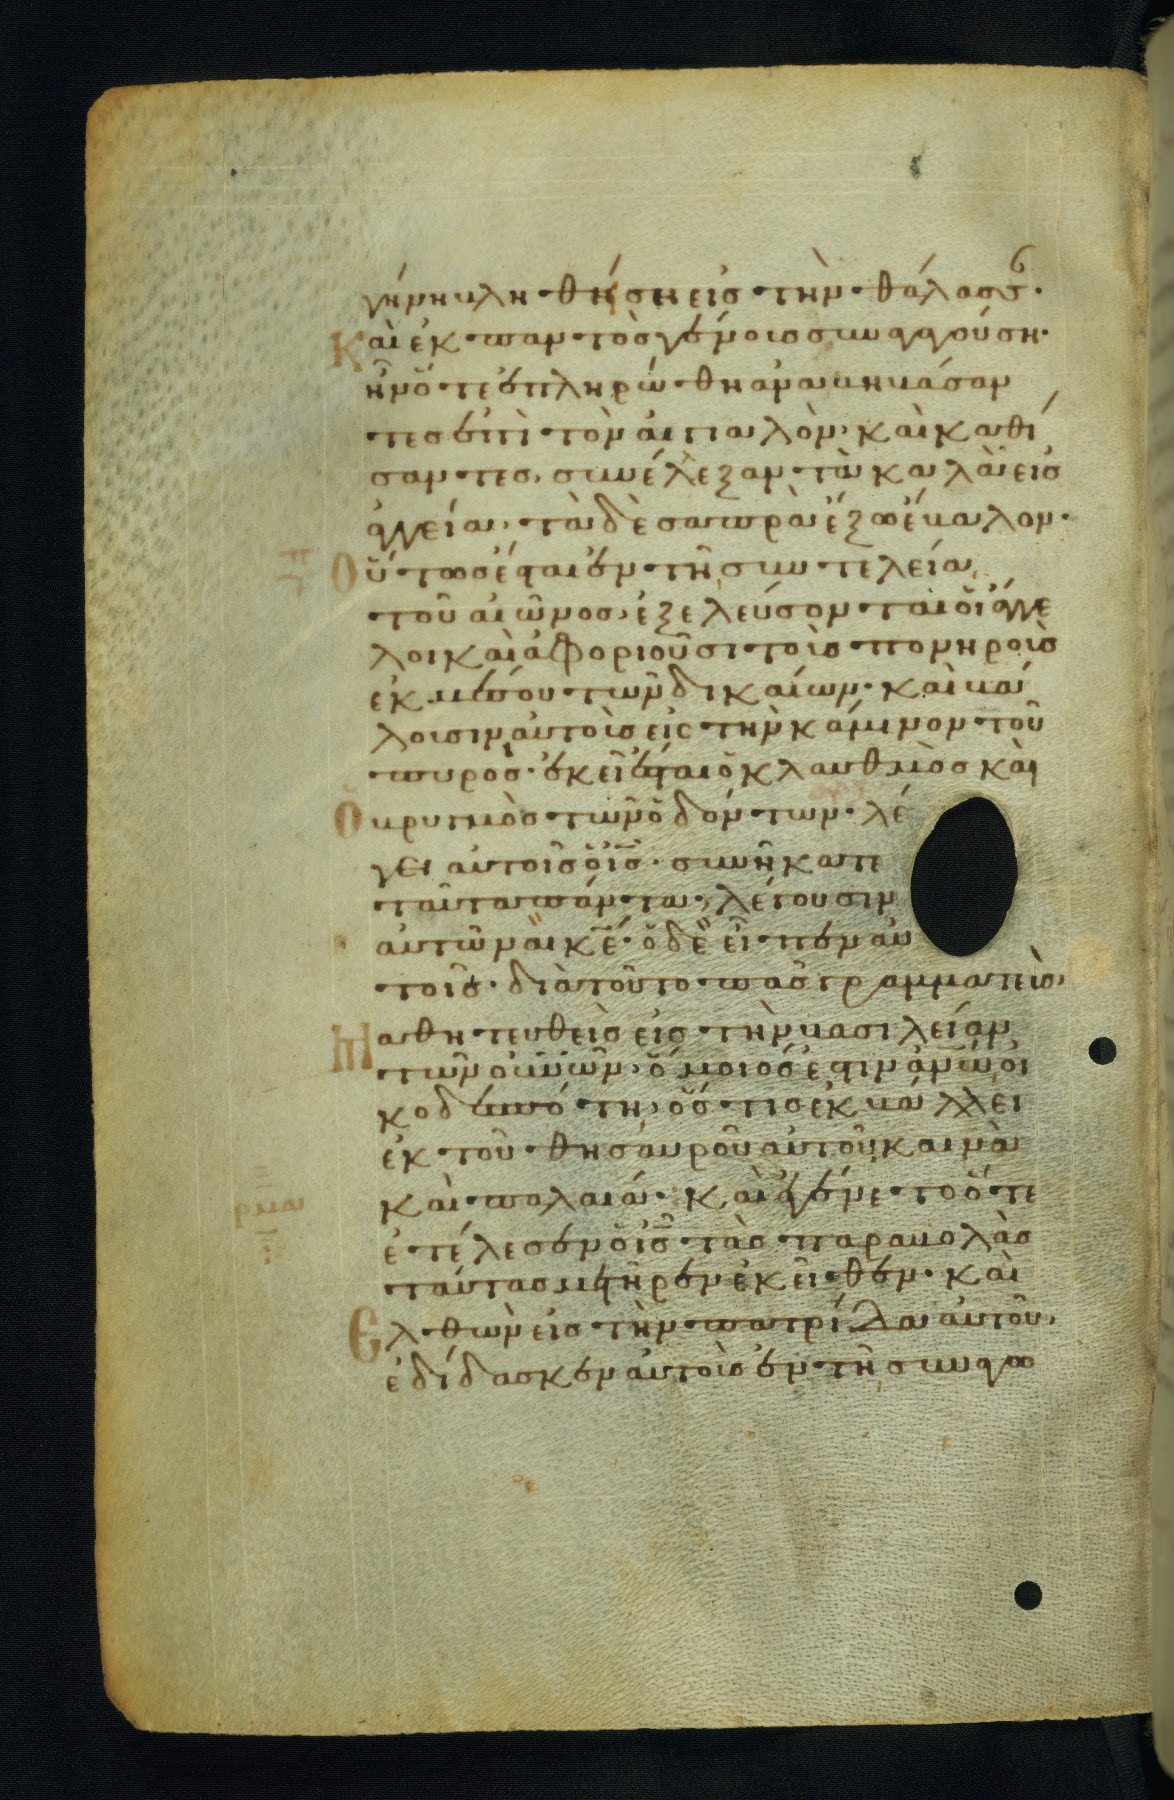 γήνη βληθήσῃ εἰς τὴν θάλασσ
Καὶ ἐκ παντὸς γένοις συναγαγούση·
ἣν ὅτε ἐπληρώθη ἀναβηβάσαν
τες ἐπὶ τὸν αἰγιαλὸν, καὶ καθί
σαντες, συνέλεξαν τὰ καλὰ εἰς
ἀγγεία, τὰ δὲ σαπρὰ ἔξω ἔβαλον·
Οὕτως ἔσται ἐν τῇ συντελεία
τοῦ αἰῶνος, ἐξελεύσονται οἱ ἄγγε
λοι καὶ ἀφοριοῦσι τοὺς πονηροὺς
ἐκ μέσου τῶν δικαίων· καὶ βά
λουσιν αὐτοὺς εἰς τὴν κάμινον τοῦ
πυρός· ἐκεῖ ἔσται ὁ κλαυθμὸς καὶ
Ὁ βρυγμὸς τῶν ὀδόντων· λέ
γει αὐτοῖς ὁ ις· συνήκατε
ταῦτα πάντα, λέγουσιν
αὐτῶ ναὶ κε· ὁ δὲ εἶπεν αὐ
τοῖς· διὰ τοῦτο πᾶς γραμματεὺς,
Μαθητευθεὶς εἰς τὴν βασιλείαν
τῶν οὐνῶν, ὅμοιός ἐστιν ἀνω οἰ
κοδεσπότη, ὅστις ἐκβάλλει
ἐκ τοῦ θησαυροῦ αὐτοῦ καινὰ
καὶ παλαιά· Καὶ ἐγένετο ὅτε
ἐτέλεσεν ὁ ις τὰς παραβολὰς
ταύτας μετῆρεν ἐκεῖθεν· καὶ
Ελθὼν εἰς τὴν πατρίδα αὐτοῦ,
ἐδίδασκεν αὐτοὺς ἐν τῇ συναγω